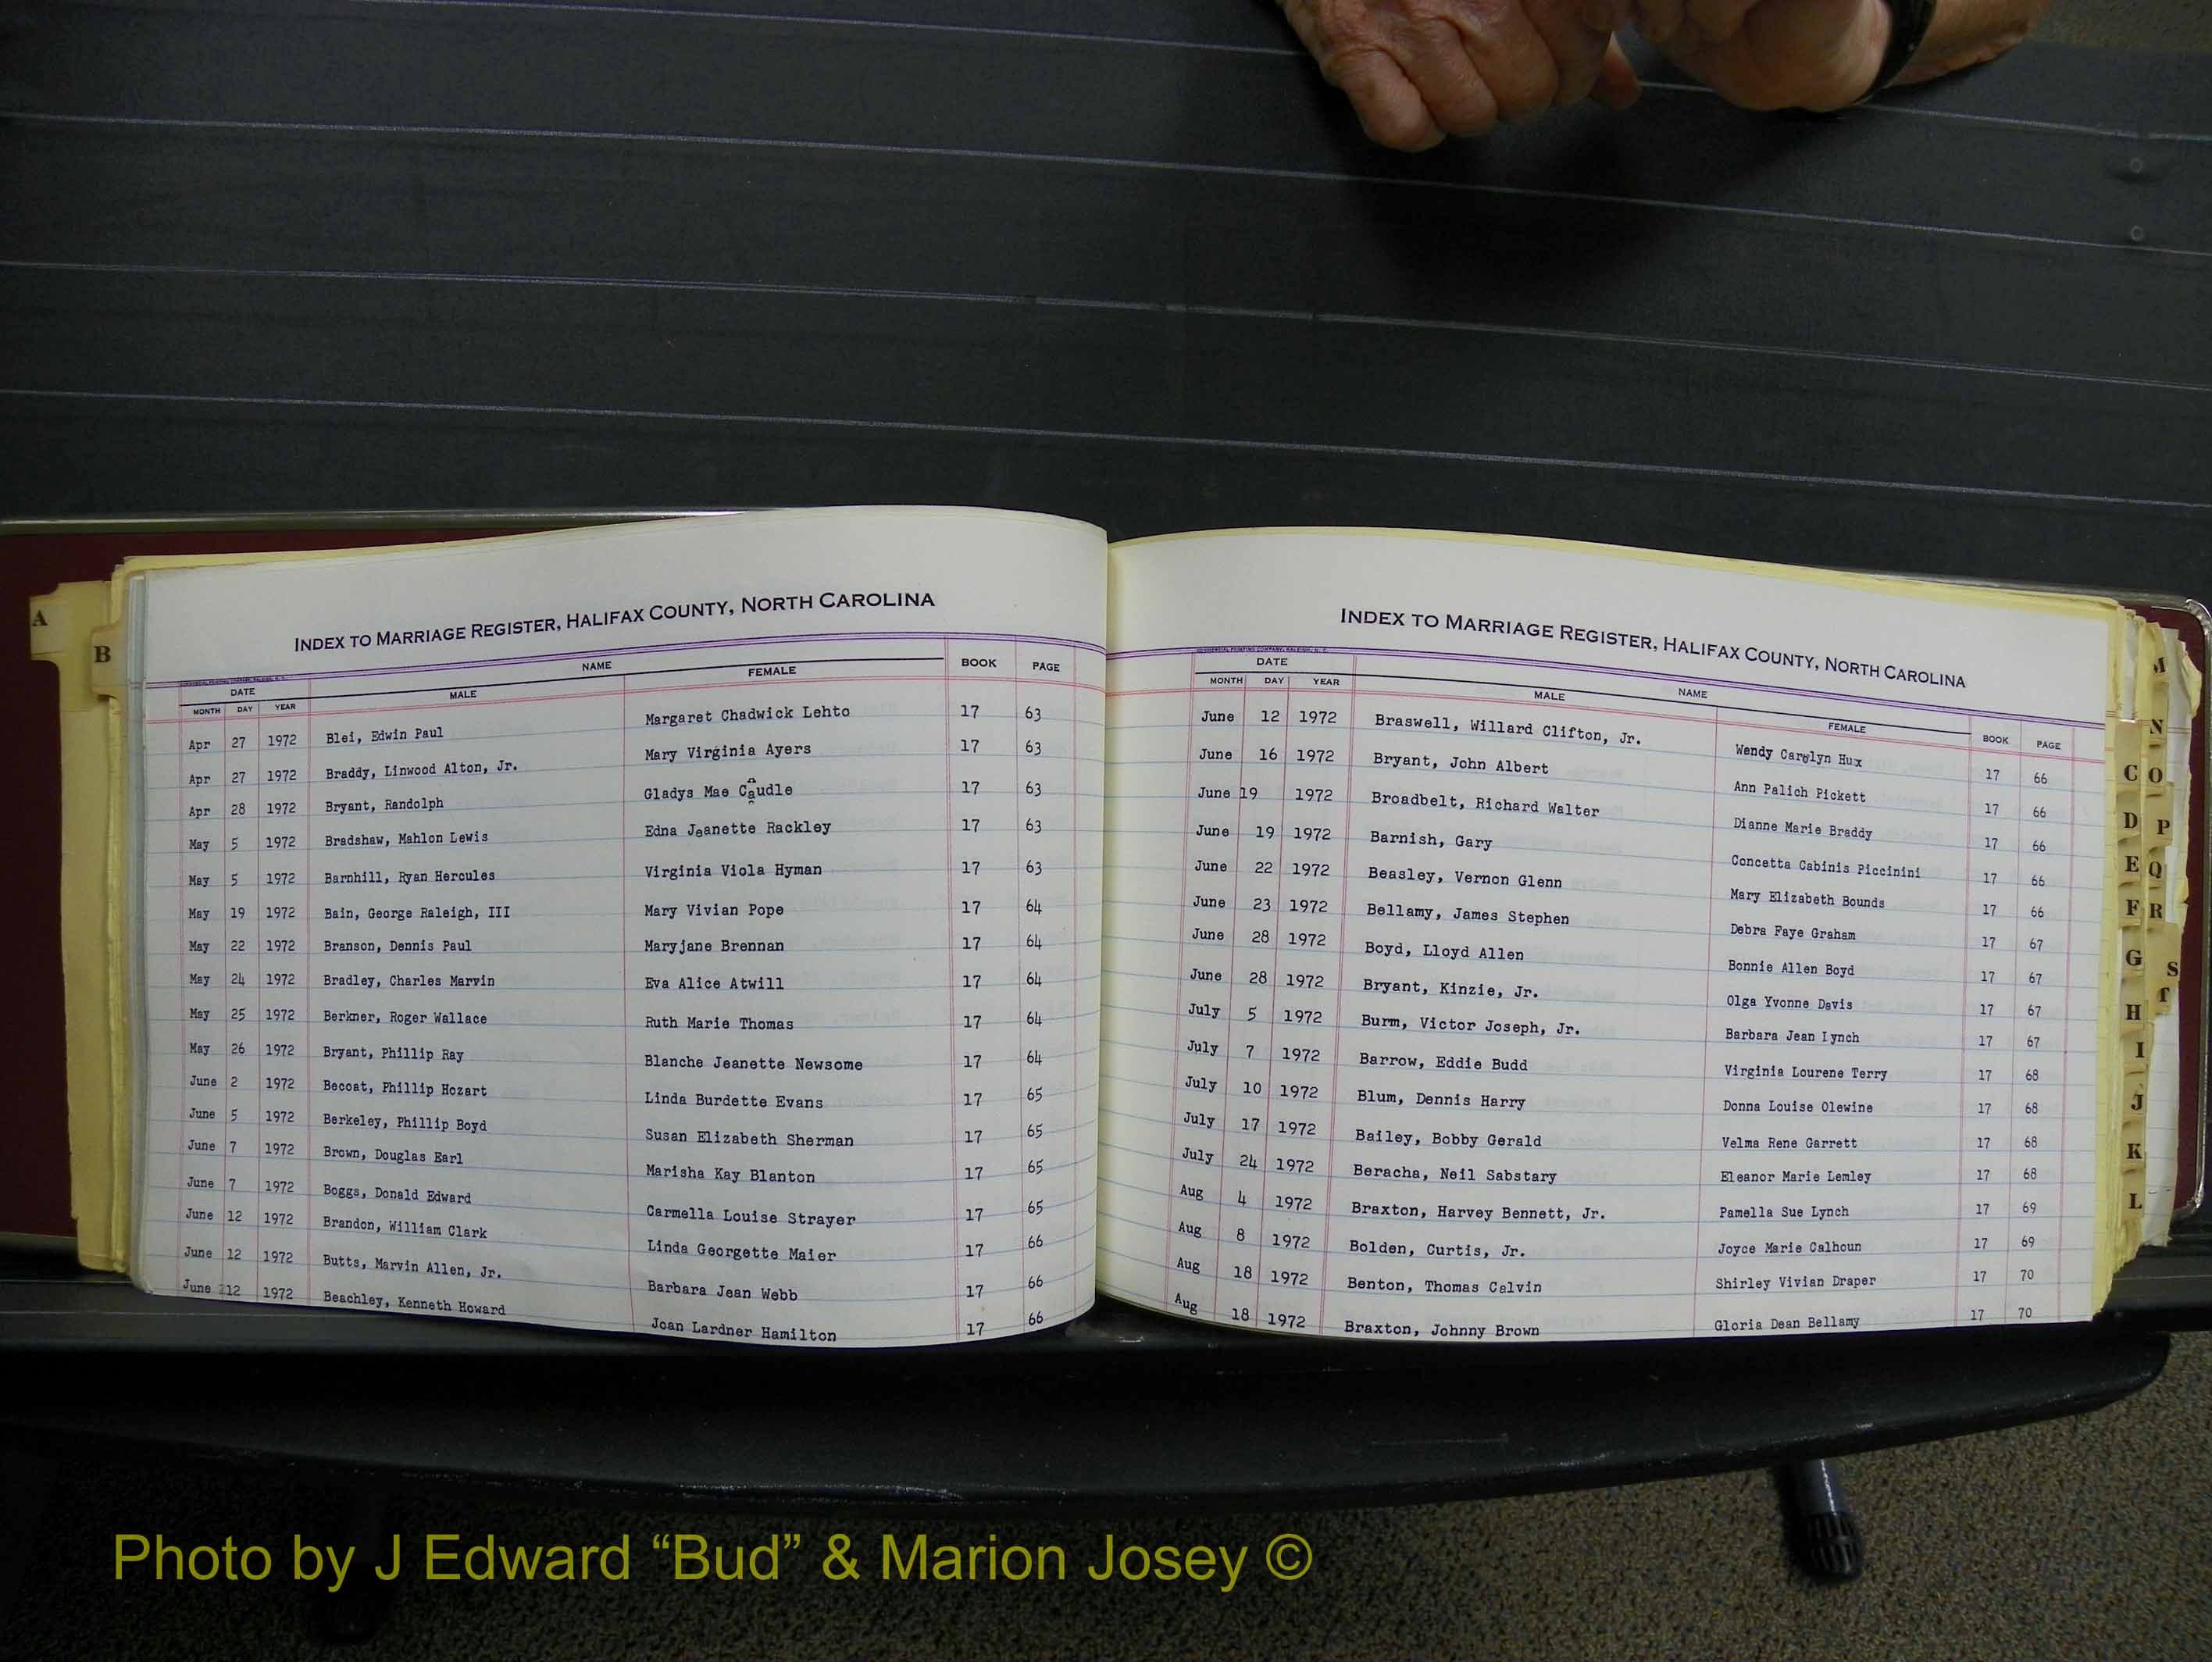 INDEX TO MARRIAGE REGISTER, HALIFAX COUNTY, NORTH CAROLINA
DATE NAME BOOK PAGE
MONTH DAY YEAR MALE FEMALE
Apr 27 1972 Blei, Edwin Paul Margaret Chadwick Lehto 17 63
Apr 27 1972 Braddy, Linwood Alton, Jr. Mary Virginia Ayers 17 63
Apr 28 1972 Bryant, Randolph Gladys Mae Caudle 17 63
May 5 1972 Bradshaw, Mahlon Lewis Edna Jeanette Rackley 17 63
May 5 1972 Barnhill, Ryan Hercules Virginia Viola Hyman 17 63
May 19 1972 Bain, George Raleigh, III Mary Vivian Pope 17 64
May 22 1972 Branson, Dennis Paul Maryjane Brennan 17 64
May 24 1972 Bradley, Charles Marvin Eva Alice Atwill 17 64
May 25 1972 Berkner, Roger Wallace Ruth Marie Thomas 17 64
May 26 1972 Bryant, Phillip Ray Blanche Jeanette Newsome 17 64
June 2 1972 Becoat, Phillip Hozart Linda Burdette Evans 17 65
June 5 1972 Berkeley, Phillip Boyd Susan Elizabeth Sherman 17 65
June 7 1972 Brown, Douglas Earl Marisha Kay Blanton 17 65
June 7 1972 Boggs, Donald Edward Carmella Louise Strayer 17 65
June 12 1972 Brandon, William Clark Linda Georgette Maier 17 66
June 12 1972 Butts, Marvin Allen, Jr. Barbara Jean Webb 17 66
June 12 1972 Beachley, Kenneth Howard Joan Lardner Hamilton 17 66
INDEX TO MARRIAGE REGISTER, HALIFAX COUNTY, NORTH CAROLINA
DATE NAME BOOK PAGE
MONTH DAY YEAR MALE FEMALE
June 12 1972 Braswell, Willard Clifton, Jr. Wendy Carolyn Hux 17 66
June 16 1972 Bryant, John Albert Ann Palich Pickett 17 66
June 19 1972 Broadbelt, Richard Walter Dianne Marie Braddy 17 66
June 19 1972 Barnish, Gary Concetta Cabinis Piccinini 17 66
June 22 1972 Beasley, Vernon Glenn Mary Elizabeth Bounds 17 66
June 23 1972 Bellamy, James Stephen Debra Faye Graham 17 67
June 28 1972 Boyd, Lloyd Allen Bonnie Allen Boyd 17 67
June 28 1972 Bryant, Kinzie, Jr. Olga Yvonne Davis 17 67
July 5 1972 Burm, Victor Joseph, Jr. Barbara Jean Lynch 17 67
July 7 1972 Barrow, Eddie Budd Virginia Lourene Terry 17 68
July 10 1972 Blum, Dennis Harry Donna Louise Olewine 17 68
July 17 1972 Bailey, Bobby Gerald Velma Rene Garrett 17 68
July 24 1972 Beracha, Neil Sabstary Eleanor Marie Lemley 17 68
Aug 4 1972 Braxton, Harvey Bennett, Jr. Pamella Sue Lynch 17 69
Aug 8 1972 Bolden, Curtis, Jr. Joyce Marie Calhoun 17 69
Aug 18 1972 Benton, Thomas Calvin Shirley Vivian Draper 17 70
Aug 18 1972 Braxton, Johnny Brown Gloria Dean Bellamy 17 70
A
B
C
D
E
F
G
H
I
J
K
L
M
N
O
P
Q
R
S
T
Photo by J Edward “Bud” & Marion Josey ©